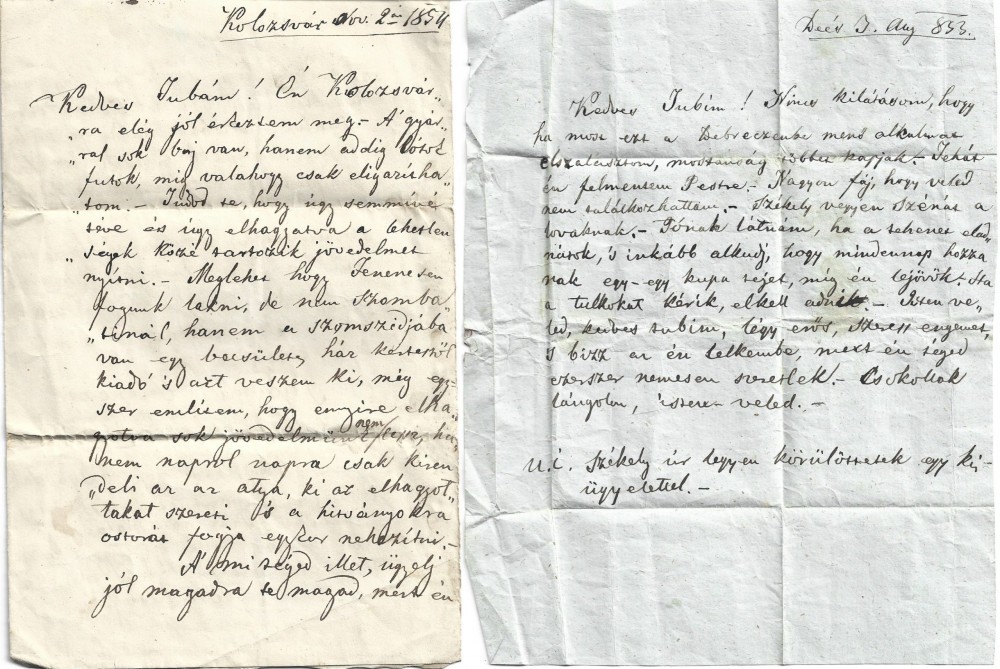 Kolozsvár Nov. 2án 1854
Kedves Tubám! Én Kolozsvár„
„ra elég jól érkeztem meg.- A' gyár„
„ral sok baj van, hanem addig
futok, míg valahogy csak eligazitha„
„tom.- Tudod te, hogy úgy semmivé
téve és úgy elhagyatva a lehetlen„
„ségek közé tartozik jövedelmet
nyitni.- Meglehet hogy Jenenesen
fogunk lakni, de nem Szomba„
„tinál, hanem a szomszédjába
van egy becsületes ház kertestől
kiadó 's azt veszem ki, még egy-
szer emlitem, hogy ennyire elha„
gyotva sok jövedelmünk nem lesz, ha„
nem napról napra csak kiren„
„deli az az atya, ki az elhagyot„
takat szereti 's a hitványokra
ostorát fogja egykor nehezitni.-
A' mi téged illet, ügyelj
jól magadra te magad, mert én
Deés 3. Aug 853.
Kedves Tubim! Nincs kilátásom, hogy
ha most ezt a Debreczenbe menő alkalmat
elszalasztom, mostanság többet kapjak.- Tehát
én felmentem Pestre.- Nagyon fáj, hogy veled
nem találkozhattam.- Székely vegyen szénát a
lovaknak.- Jónak látnám, ha a tehenet elad„
nátok, 's inkább alkudj, hogy mindennap hozza
nak egy-egy kupa tejet, míg én lejövök.- Ha
a tulkokat kérik, el kell adni.- Isten ve„
led, kedves tubim, légy erős, szeress engemet,
's bizz az én lelkembe, mert én téged
ezerszer nemesen szeretlek.- Csokollak
lángolva, isten veled.-
U.i. Székely úr legyen körülöttetek egy kis
ügyelettel.-